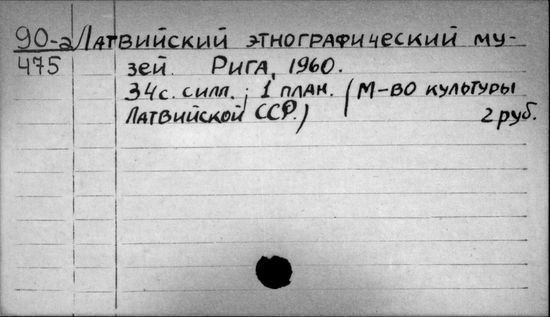 90-а Латвийский этнографический му-
475 зей. Рига, 1960.
34 с. с илл.; 1 план. (М-во культуры
Латвийской ССР.) 2 руб.